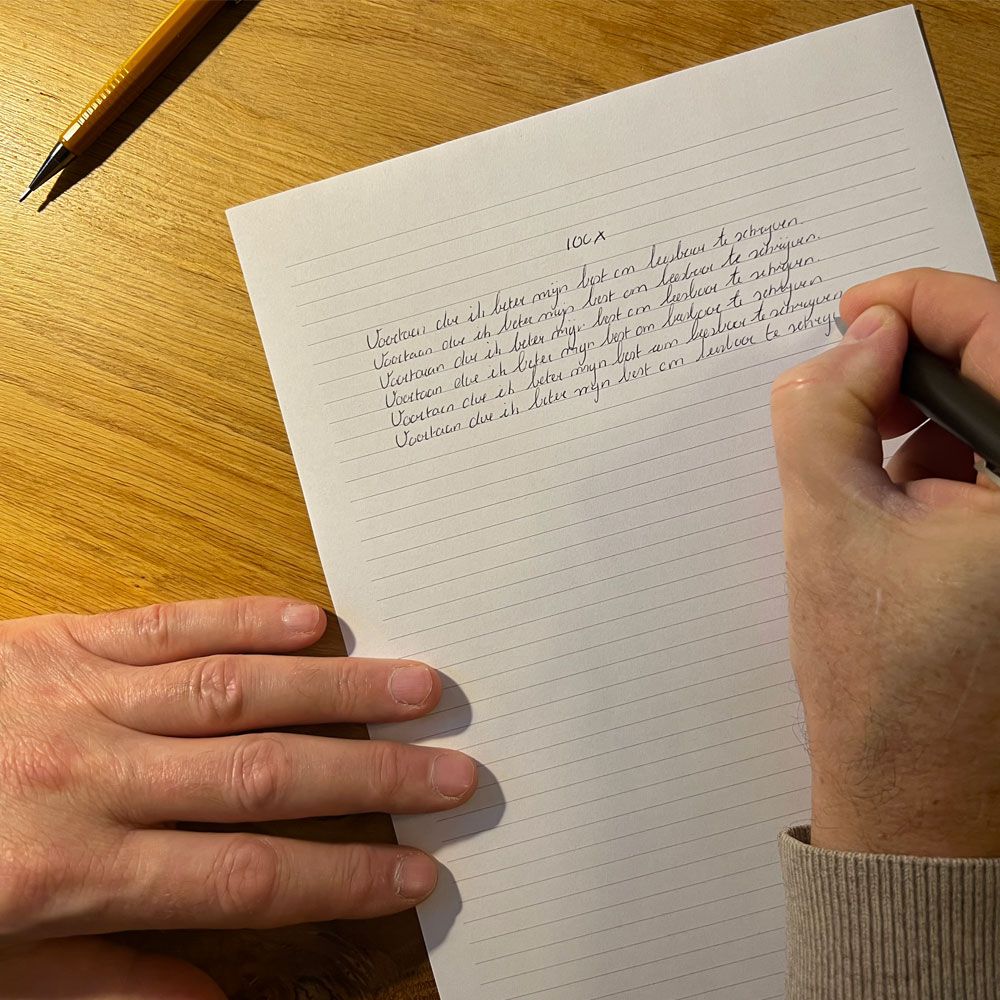 100x
Voortaan doe ik beter mijn best om leesbaar te schrijven.
Voortaan doe ik beter mijn best om leesbaar te schrijven.
Voortaan doe ik beter mijn best om leesbaar te schrijven.
Voortaan doe ik beter mijn best om leesbaar te schrijven
Voortaan doe ik beter mijn best om leesbaar te schrijven
Voortaan doe ik beter mijn best om leesbaar te schrij